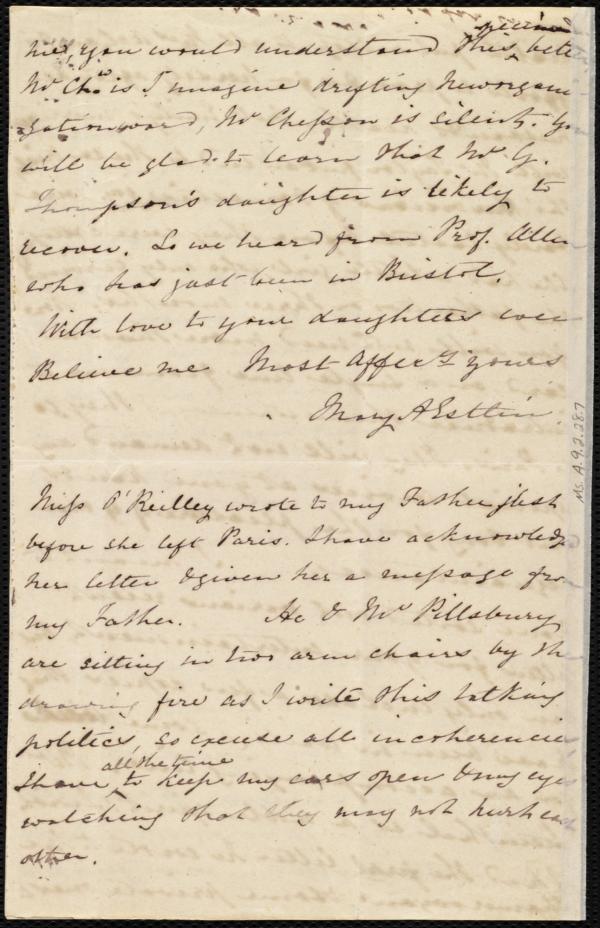 me, you would understand this
Mr Chn. is I imagine drifting Neworgani
zationward, Mr Chesson is silent. Yo
will be glad to learn that Mr G.
Thompson's daughter is likely to
recover. So we heard from Prof. Allen
who has just been in Bristol.
With love to your daughters
Believe me Most Affecly yours
Mary A Estlin
Miss O'Reilley wrote to my Father just
before she left Paris. I have acknowledg
her letter & given her a message fro
my Father. He & Mr Pillsbury
are sitting in two arm chairs by the
drawing fire as I write this talking
politics, so excuse all incoherencies
all the time
I have to keep my ears open & my eyes
watching that they may not hurt each
other.
Ms. A. 9. 2. 28.7